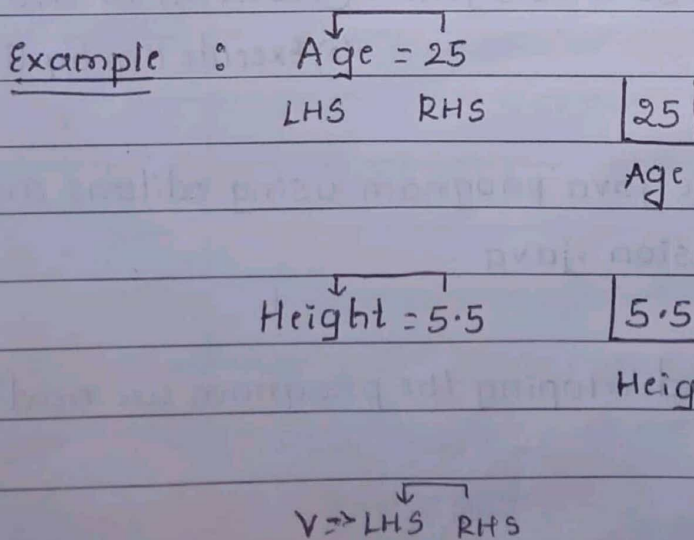 Example : Age = 25
LHS RHS 25
Age
Height = 5.5 5.5
Heig
V=> LHS RHS